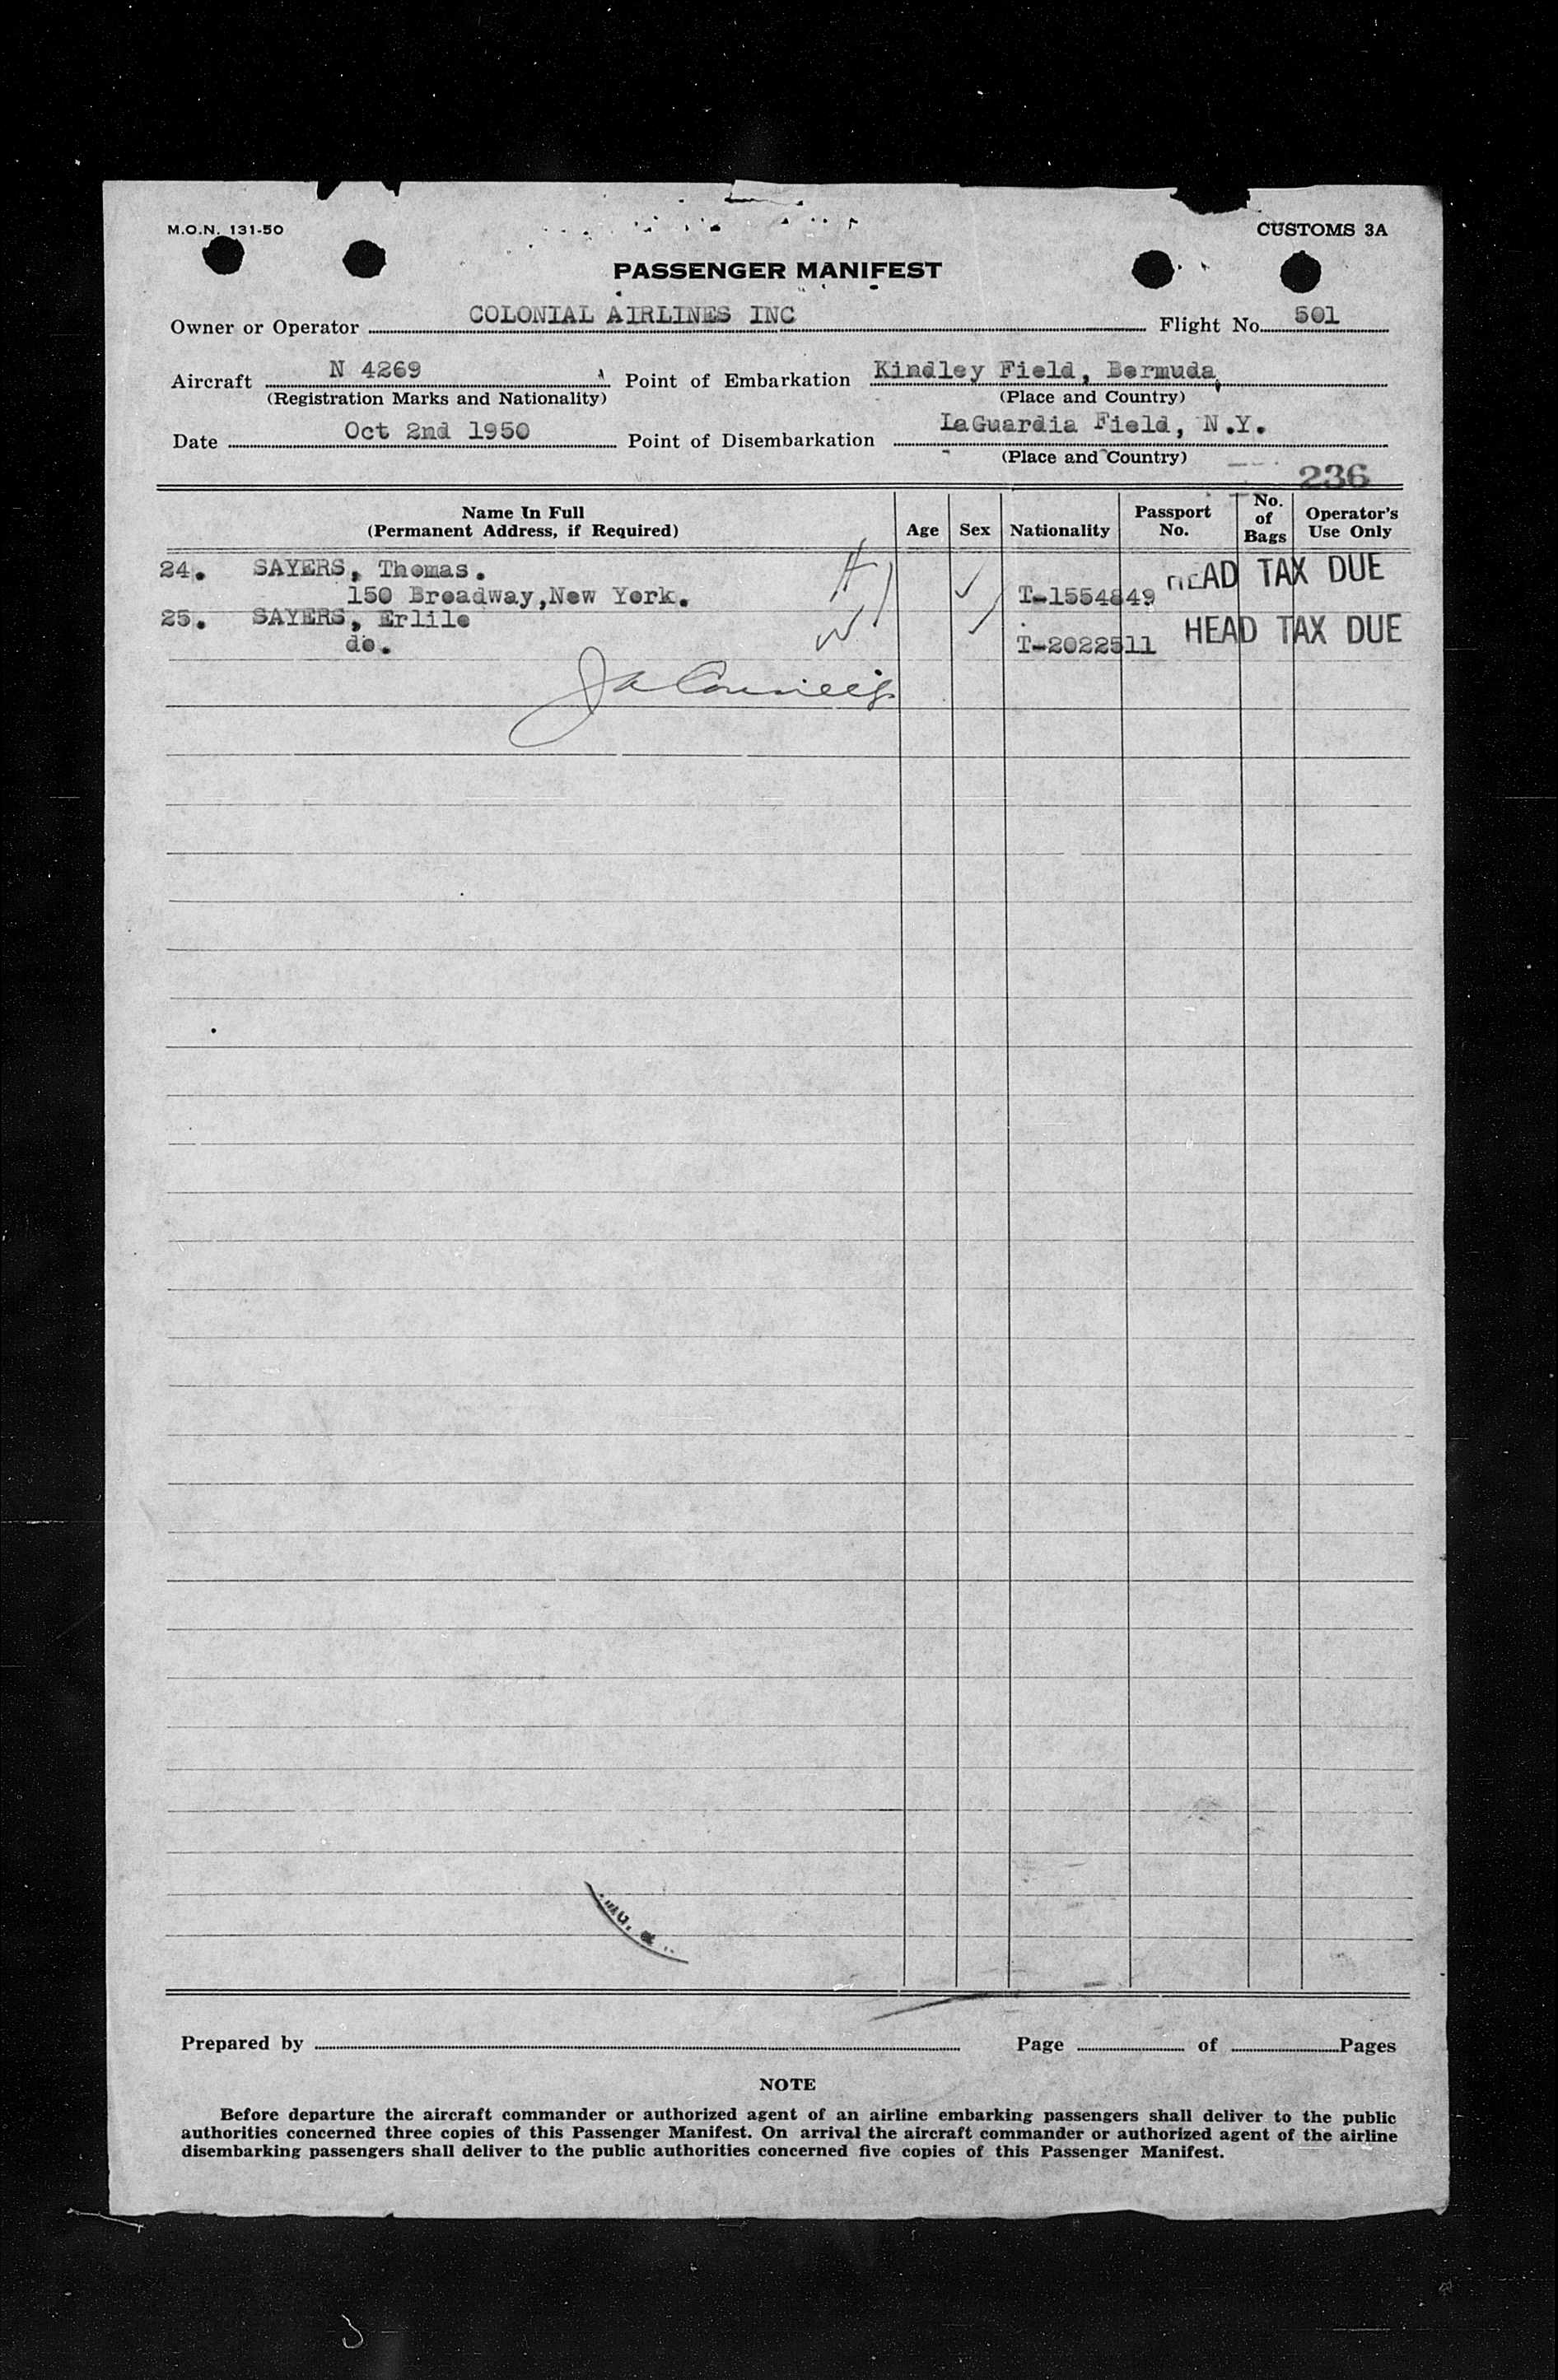 M.O.N. 131-50
CUSTOMS 3A
PASSENGER MANIFEST
Owner or Operator COLONIAL AIRLINES INC Flight No. 501
Aircraft N 4269 Point of Embarkation Kindley Field, Bermuda,
(Registration Marks and Nationality) (Place and Country)
Date Oct 2nd 1950 Point of Disembarkation LaGuardia Field, N.Y.
(Place and Country)
236
Name In Full
(Permanent Address, if Required)
Age
Sex
Nationality
Passport
No.
No.
of
Bags
Operator's
Use Only
24. SAYERS, Thomas. H HEAD TAX DUE
150 Broadway,New York. T-1554849
25. SAYERS, Erlile W HEAD TAX DUE
do. T-2022511
Prepared by Page of Pages
NOTE
Before departure the aircraft commander or authorized agent of an airline embarking passengers shall deliver to the public
authorities concerned three copies of this Passenger Manifest. On arrival the aircraft commander or authorized agent of the airline
disembarking passengers shall deliver to the public authorities concerned five copies of this Passenger Manifest.